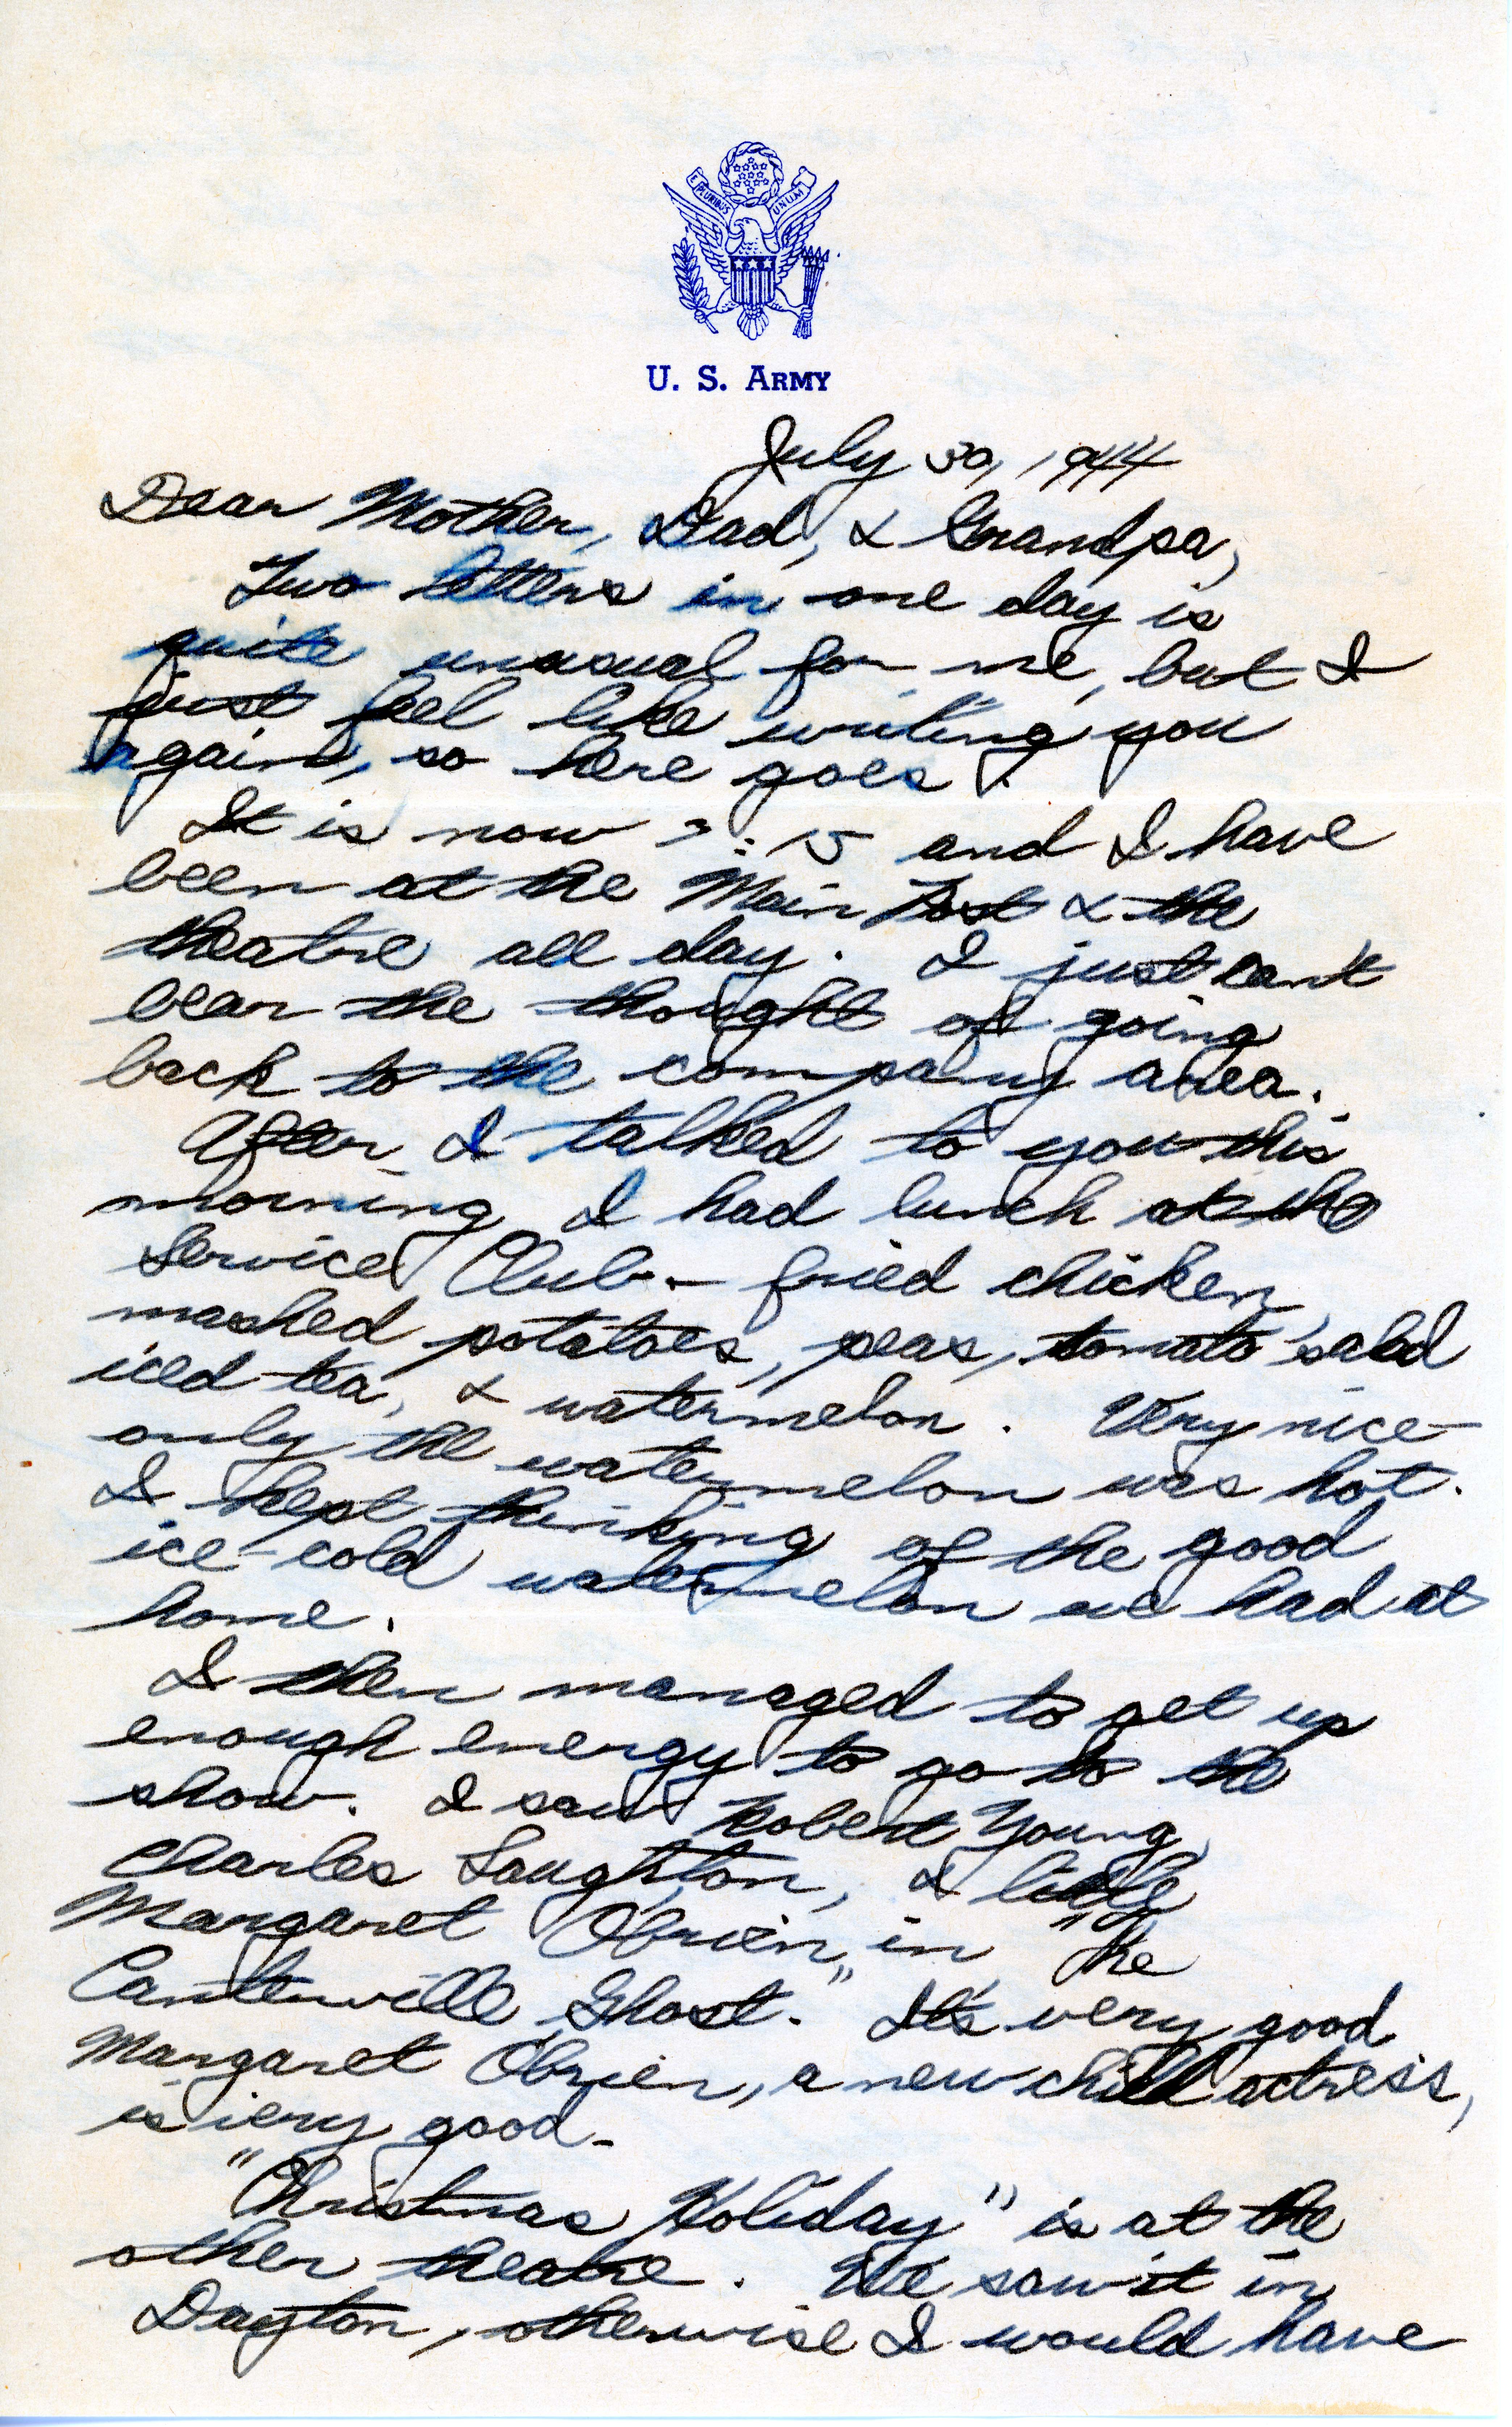 E PLURIBUS UNUM
U. S. ARMY
July 30, 1944
Dear Mother, Dad, & Grandpa,
Two letters in one day is
quite unusual for me, but I
just feel like writing you
again, so here goes.
It is now :15 and I have
been at the Main Post & the
theatre all day. I just can't
bear the thought of going
back to the company area.
After I talked to you this
morning I had lunch at the
Service Club - fried chicken,
mashed potatoes, peas, tomato salad
iced tea, & watermelon. Very nice -
only the watermelon was hot.
I kept thinking of the good
ice-cold watermelon we had at
home.
I then managed to get up
enough energy to go to the
show. I saw Robert Young,
Charles Laughton, & little
Margaret O'Brien, in "The
Canterville Ghost." It's very good
Margaret O'Brien, a new child actress,
is very good.
"Christmas Holiday" is at the
other theatre. We saw it in
Dayton, otherwise I would have